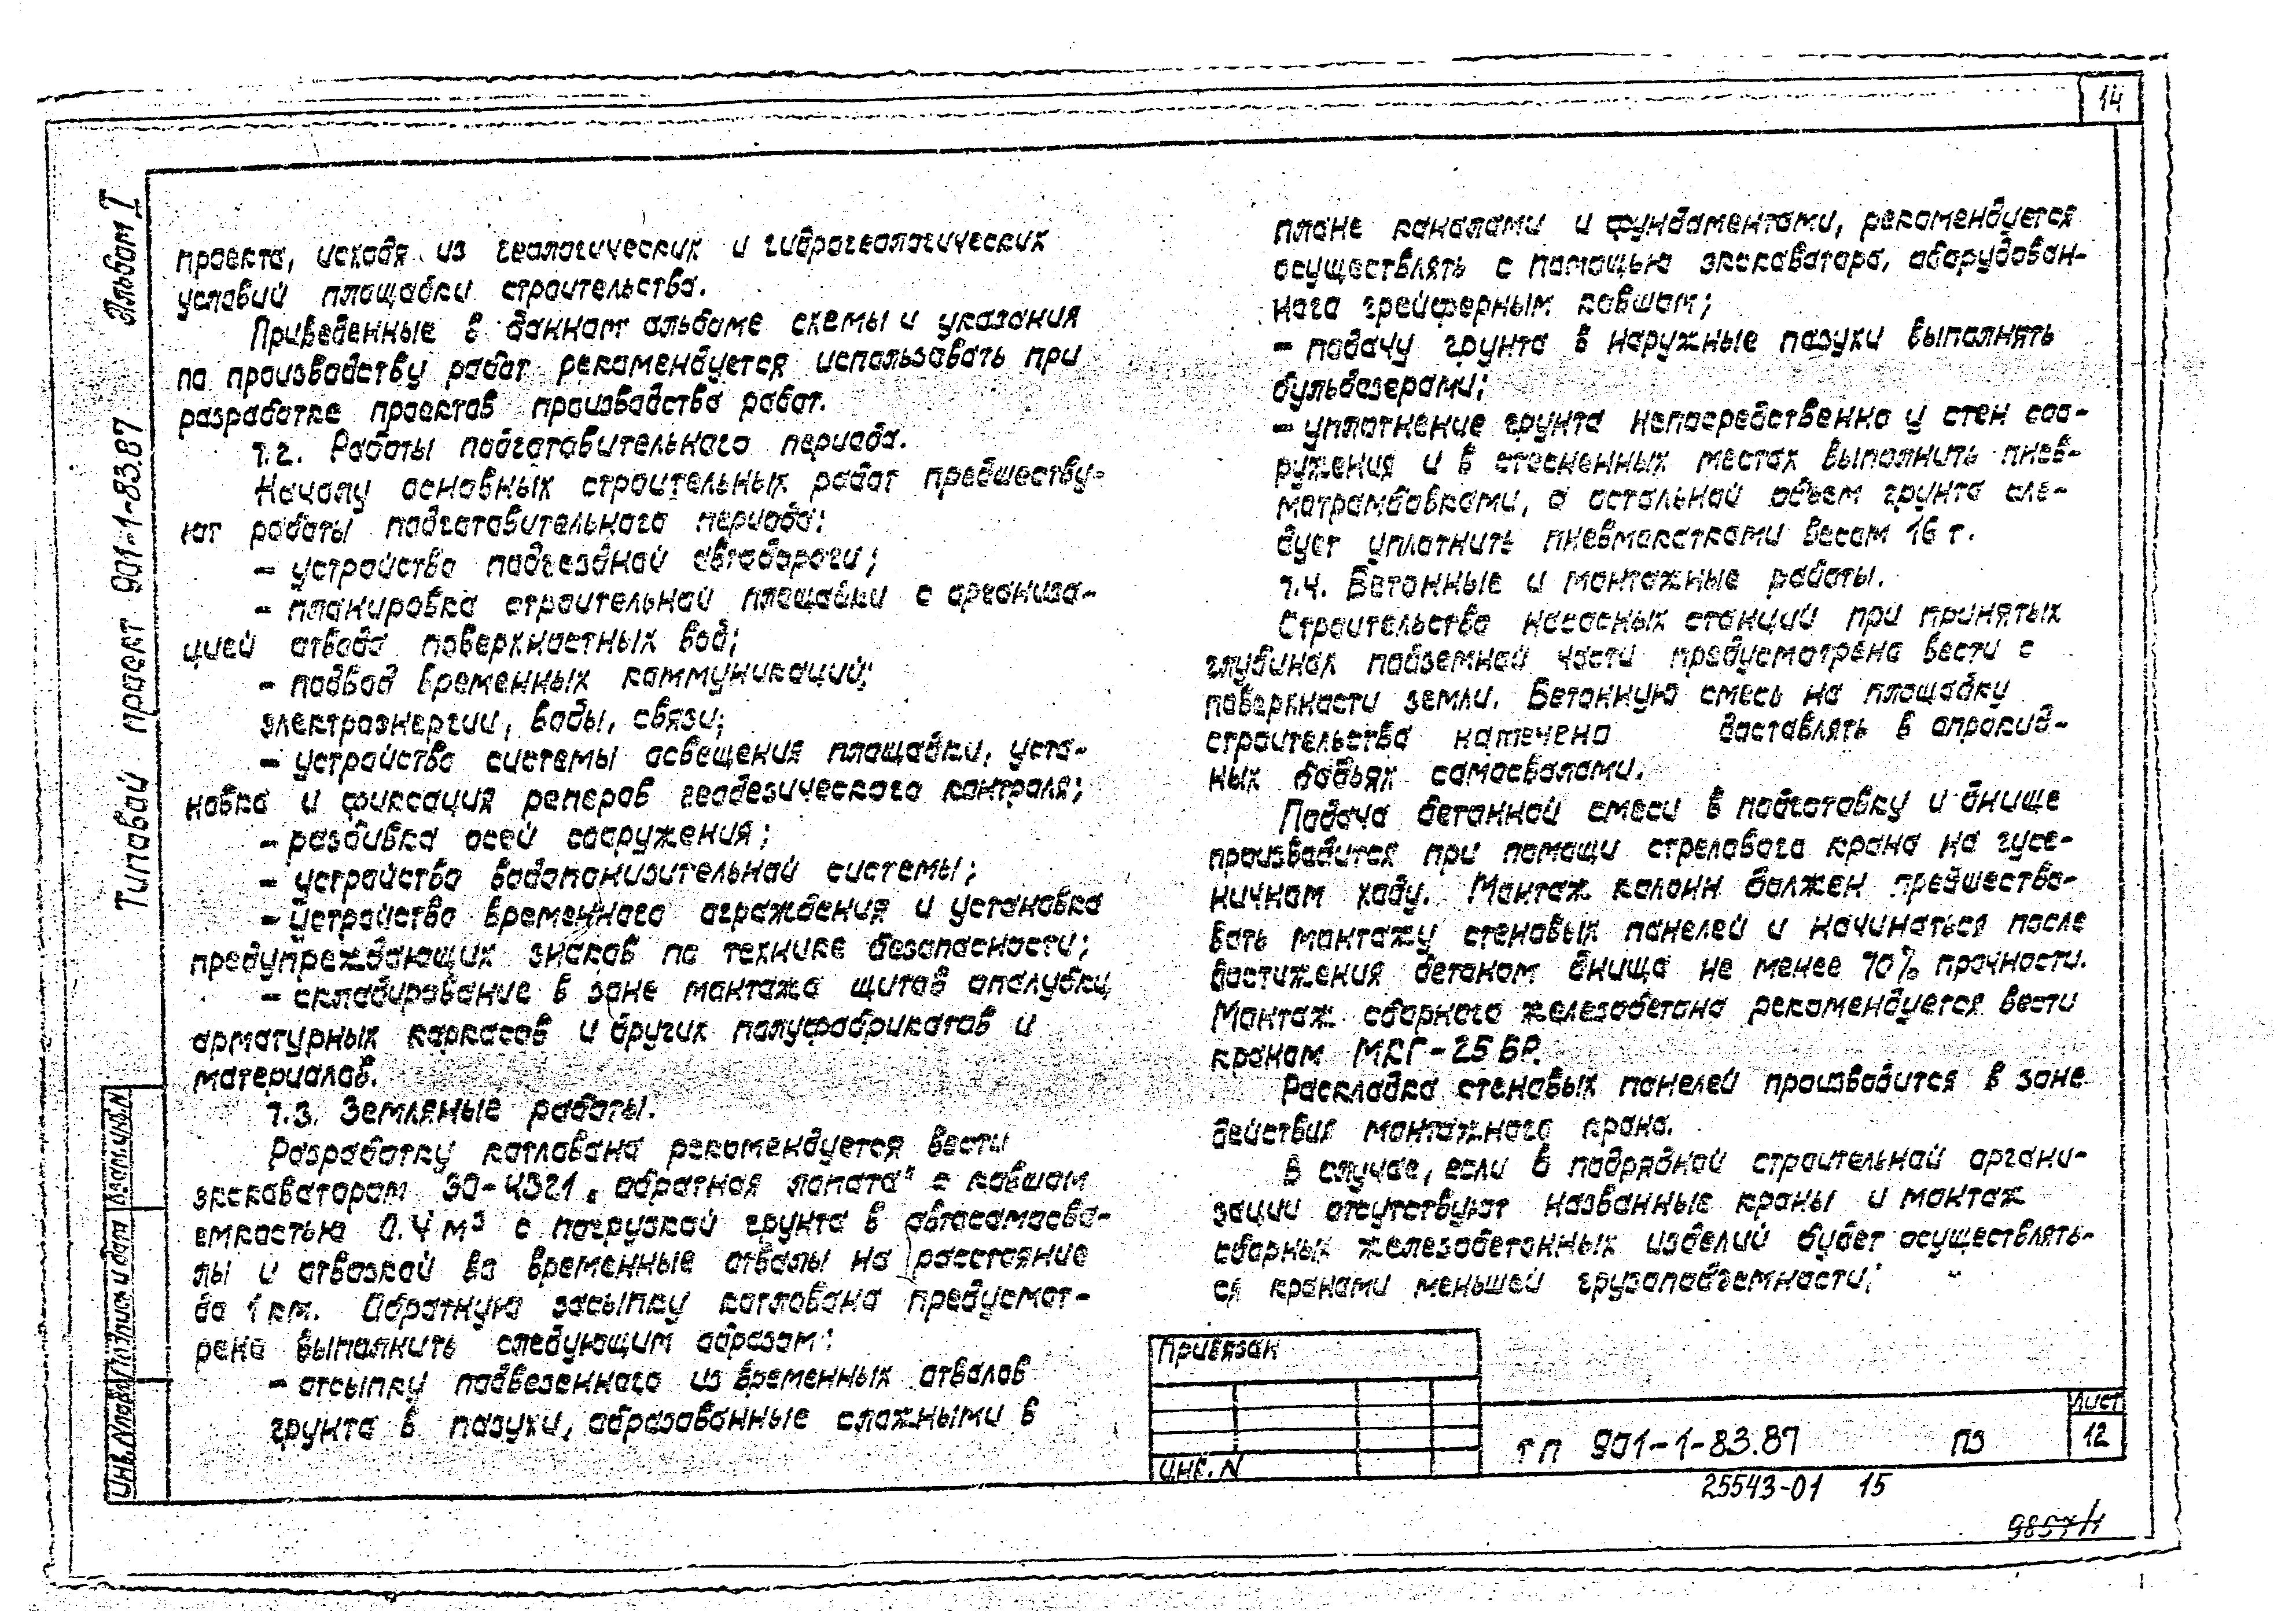 14
Альбом I
Типовой проект 901-1-83.87
проекта, исходя из геологических и гидрогеологических
условий площадки строительства.
Приведенные в данном альбоме схемы и указания
по производству работ рекомендуется использовать при
разработке проектов производства работ.
7.2. Работы подготовительного периода.
Началу основных строительных работ предшеству-
ют работы подготовительного периода:
- устройство подъездной автодороги;
- планировка строительной площадки с организа-
цией отвода поверхностных вод;
- подвод временных коммуникаций;
электроэнергии, воды, связи;
- устройство системы освещения площадки, уста-
новка и фиксация реперов геодезического контроля;
- разбивка осей сооружения;
- устройство водопонизительной системы;
- устройство временного ограждения и установка
предупреждающих знаков по технике безопасности;
- складирование в зоне монтажа щитов опалубки,
арматурных каркасов и других полуфабрикатов и
материалов.
7.3. Земляные работы.
Разработку котлована рекомендуется вести
экскаватором ЭО-4321 „обратная лопата" с ковшом
емкостью 0.4 м³ с погрузкой грунта в автосамосва-
лы и отвозкой во временные отвалы на расстояние
до 1 км. Обратную засыпку котлована предусмот-
рено выполнить следующим образом:
- отсыпку подвезенного из временных отвалов
грунта в пазухи, образованные сложными в
плане каналами и фундаментами, рекомендуется
осуществлять с помощью экскаватора, оборудован-
ного грейферным ковшом;
- подачу грунта в наружные пазухи выполнять
бульдозерами;
- уплотнение грунта непосредственно у стен соо-
ружения и в стесненных местах выполнить пнев-
мотрамбовками, а остальной объем грунта сле-
дует уплотнить пневмокатками весом 16 т.
7.4. Бетонные и монтажные работы.
Строительство насосных станций при принятых
глубинах подземной части предусмотрено вести с
поверхности земли. Бетонную смесь на площадку
строительства намечено доставлять в опрокид-
ных бадьях самосвалами.
Подача бетонной смеси в подготовку и днище
производится при помощи стрелового крана на гусе-
ничном ходу. Монтаж колонн должен предшество-
вать монтажу стеновых панелей и начинаться после
достижения бетоном днища не менее 70% прочности.
Монтаж сборного железобетона рекомендуется вести
краном МКГ-25 БР.
Раскладка стеновых панелей производится в зоне
действия монтажного крана.
В случае, если в подрядной строительной органи-
зации отсутствуют названные краны и монтаж
сборных железобетонных изделий будет осуществлять-
ся кранами меньшей грузоподъемности,
Инв. № подл. Подпись и дата Взам. инв. №
Привязан
Инв. N
ТП 901-1-83.87 ПЗ
Лист
12
25543-01 15
9857/1